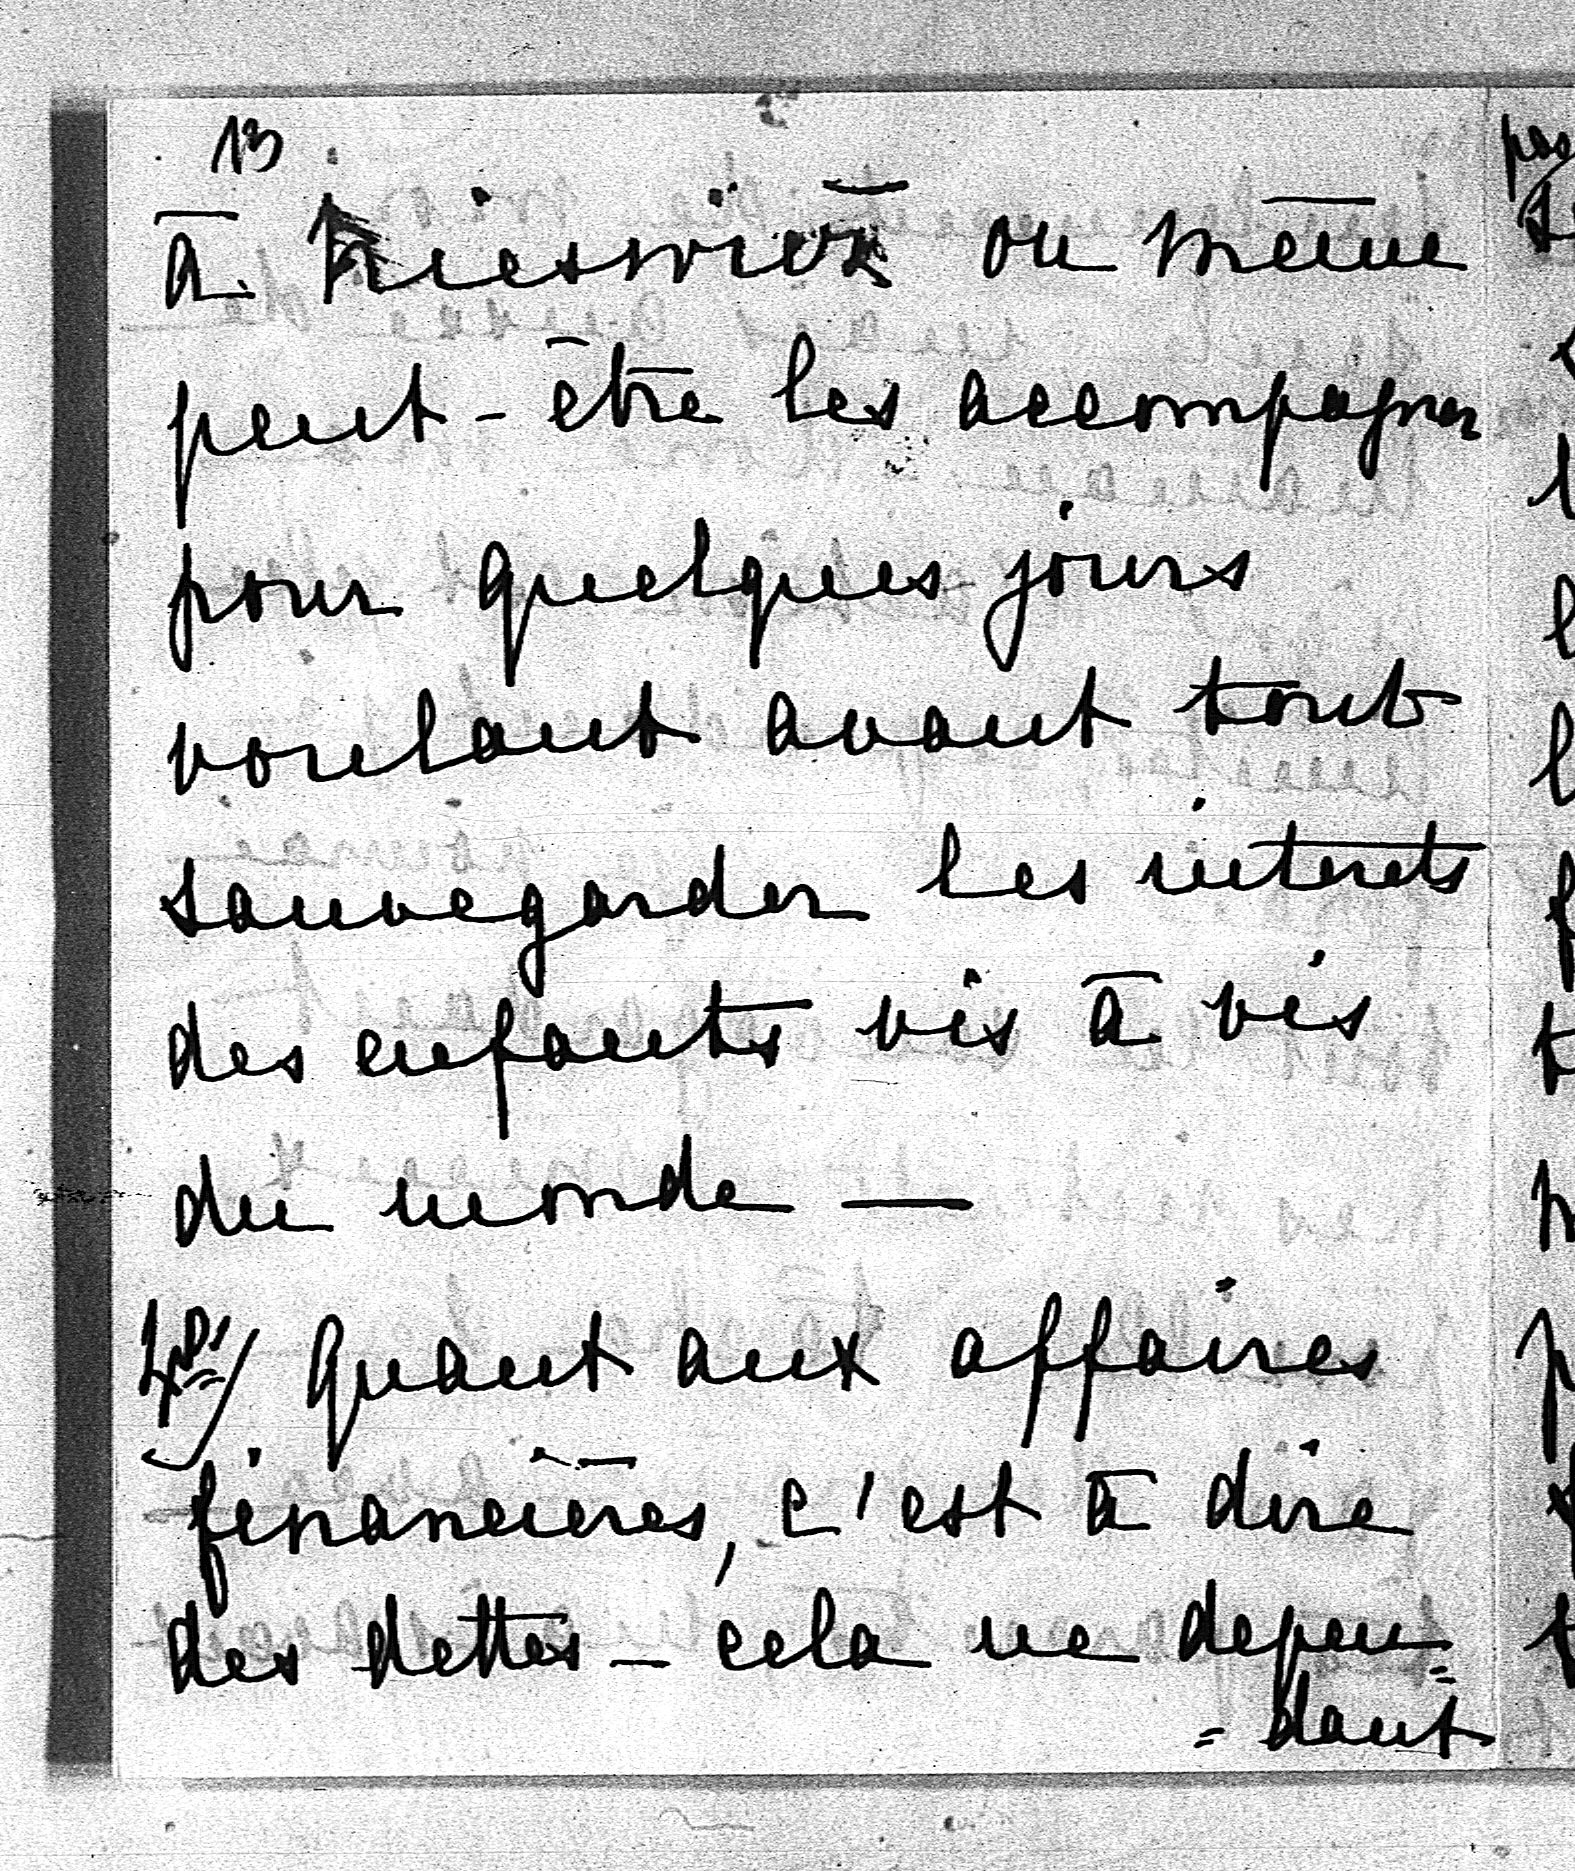 13
à Nieswiez ou même
peut-être les accompagner
pour quelques jours
voulant avant tout
sauvegarder les interets
des enfants vis à vis
du monde —
Quant aux affaires
financières, c'est à dire
des dettes - cela ne depen=
=dant
pas